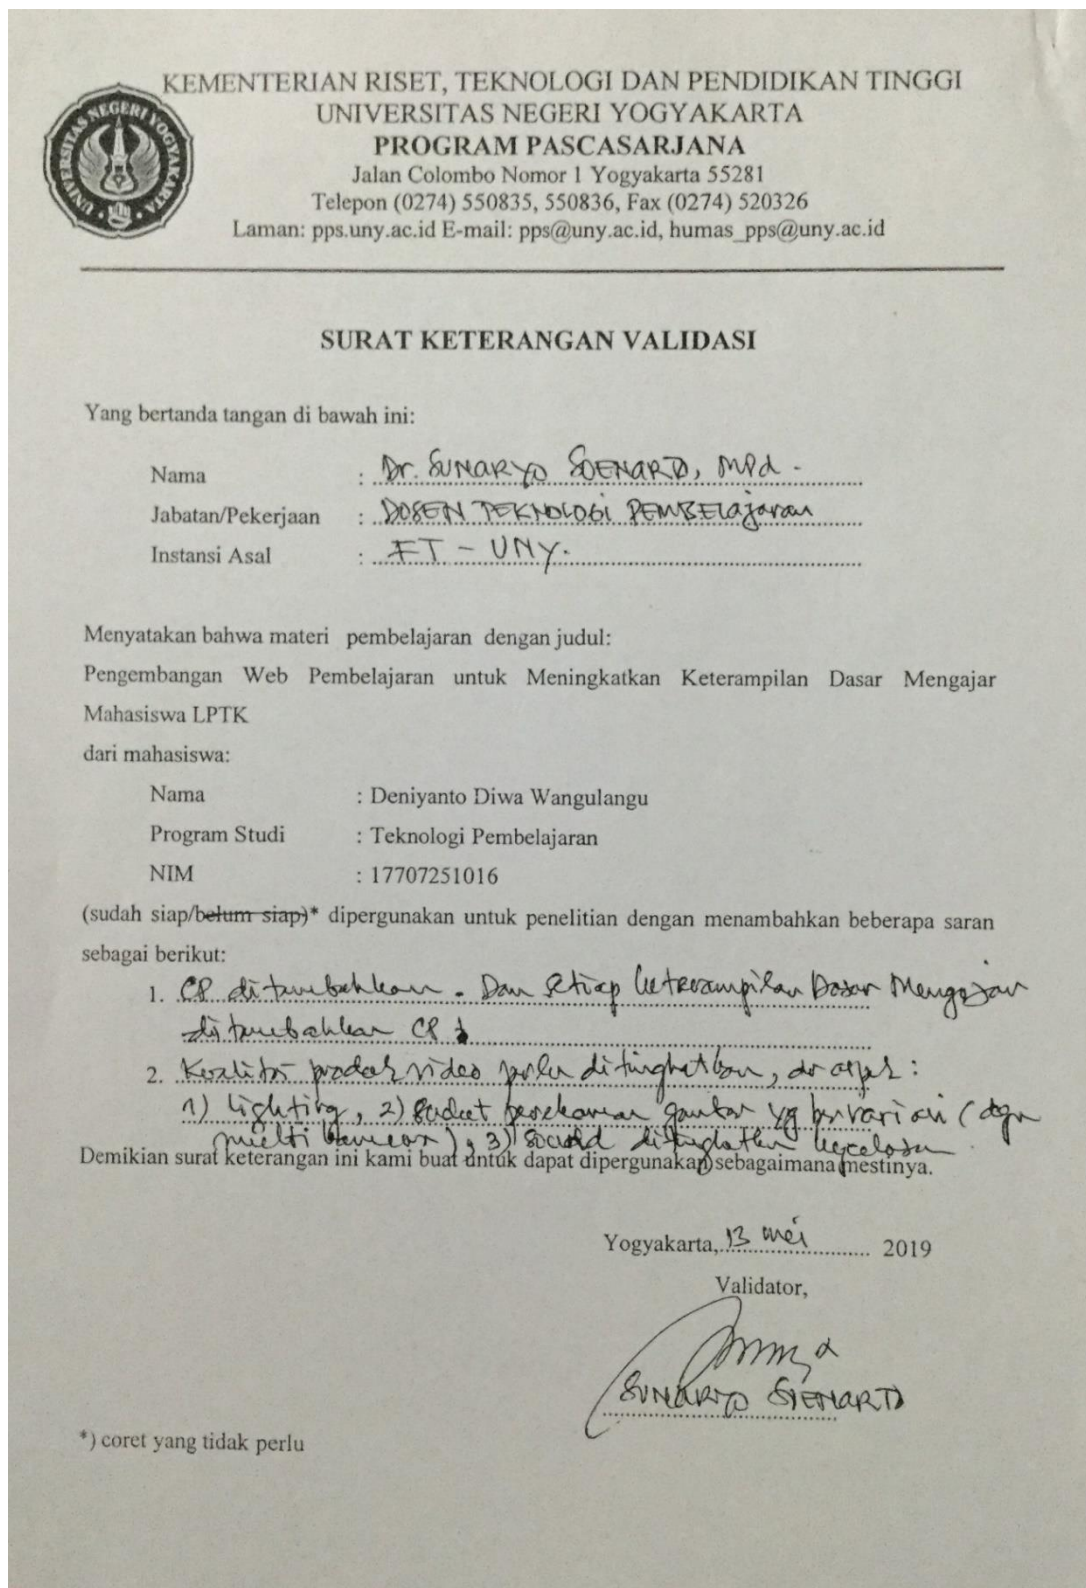 KEMENTERIAN RISET, TEKNOLOGI DAN PENDIDIKAN TINGGI
UNIVERSITAS NEGERI YOGYAKARTA
PROGRAM PASCASARJANA
Jalan Colombo Nomor 1 Yogyakarta 55281
Telepon (0274) 550835, 550836, Fax (0274) 520326
Laman: pps.uny.ac.id E-mail: pps@uny.ac.id, humas_pps@uny.ac.id
UNIVERSITAS NEGERI YOGYAKARTA
UNY
SURAT KETERANGAN VALIDASI
Yang bertanda tangan di bawah ini:
Nama : Dr. SUNARYO SOENARTO, MPd.
Jabatan/Pekerjaan : DOSEN TEKNOLOGI PEMBELajaran
Instansi Asal : FT - UNY.
Menyatakan bahwa materi pembelajaran dengan judul:
Pengembangan Web Pembelajaran untuk Meningkatkan Keterampilan Dasar Mengajar
Mahasiswa LPTK
dari mahasiswa:
Nama : Deniyanto Diwa Wangulangu
Program Studi : Teknologi Pembelajaran
NIM : 17707251016
(sudah siap/belum siap)* dipergunakan untuk penelitian dengan menambahkan beberapa saran
sebagai berikut:
1. CP ditambahkan. Dan Setiap keterampilan Dasar Mengajar
ditambahkan CP
2. Kualitas produk video perlu ditingkatkan, dr aspek:
1) lighting, 2) Sudut perekaman gambar yg bervariasi (dgn
multi kamera), 3) Sound ditingkatkan kejelasan
Demikian surat keterangan ini kami buat untuk dapat dipergunakan sebagaimana mestinya.
Yogyakarta, 13 mei 2019
Validator,
SUNARYO SOENARTO
*) coret yang tidak perlu